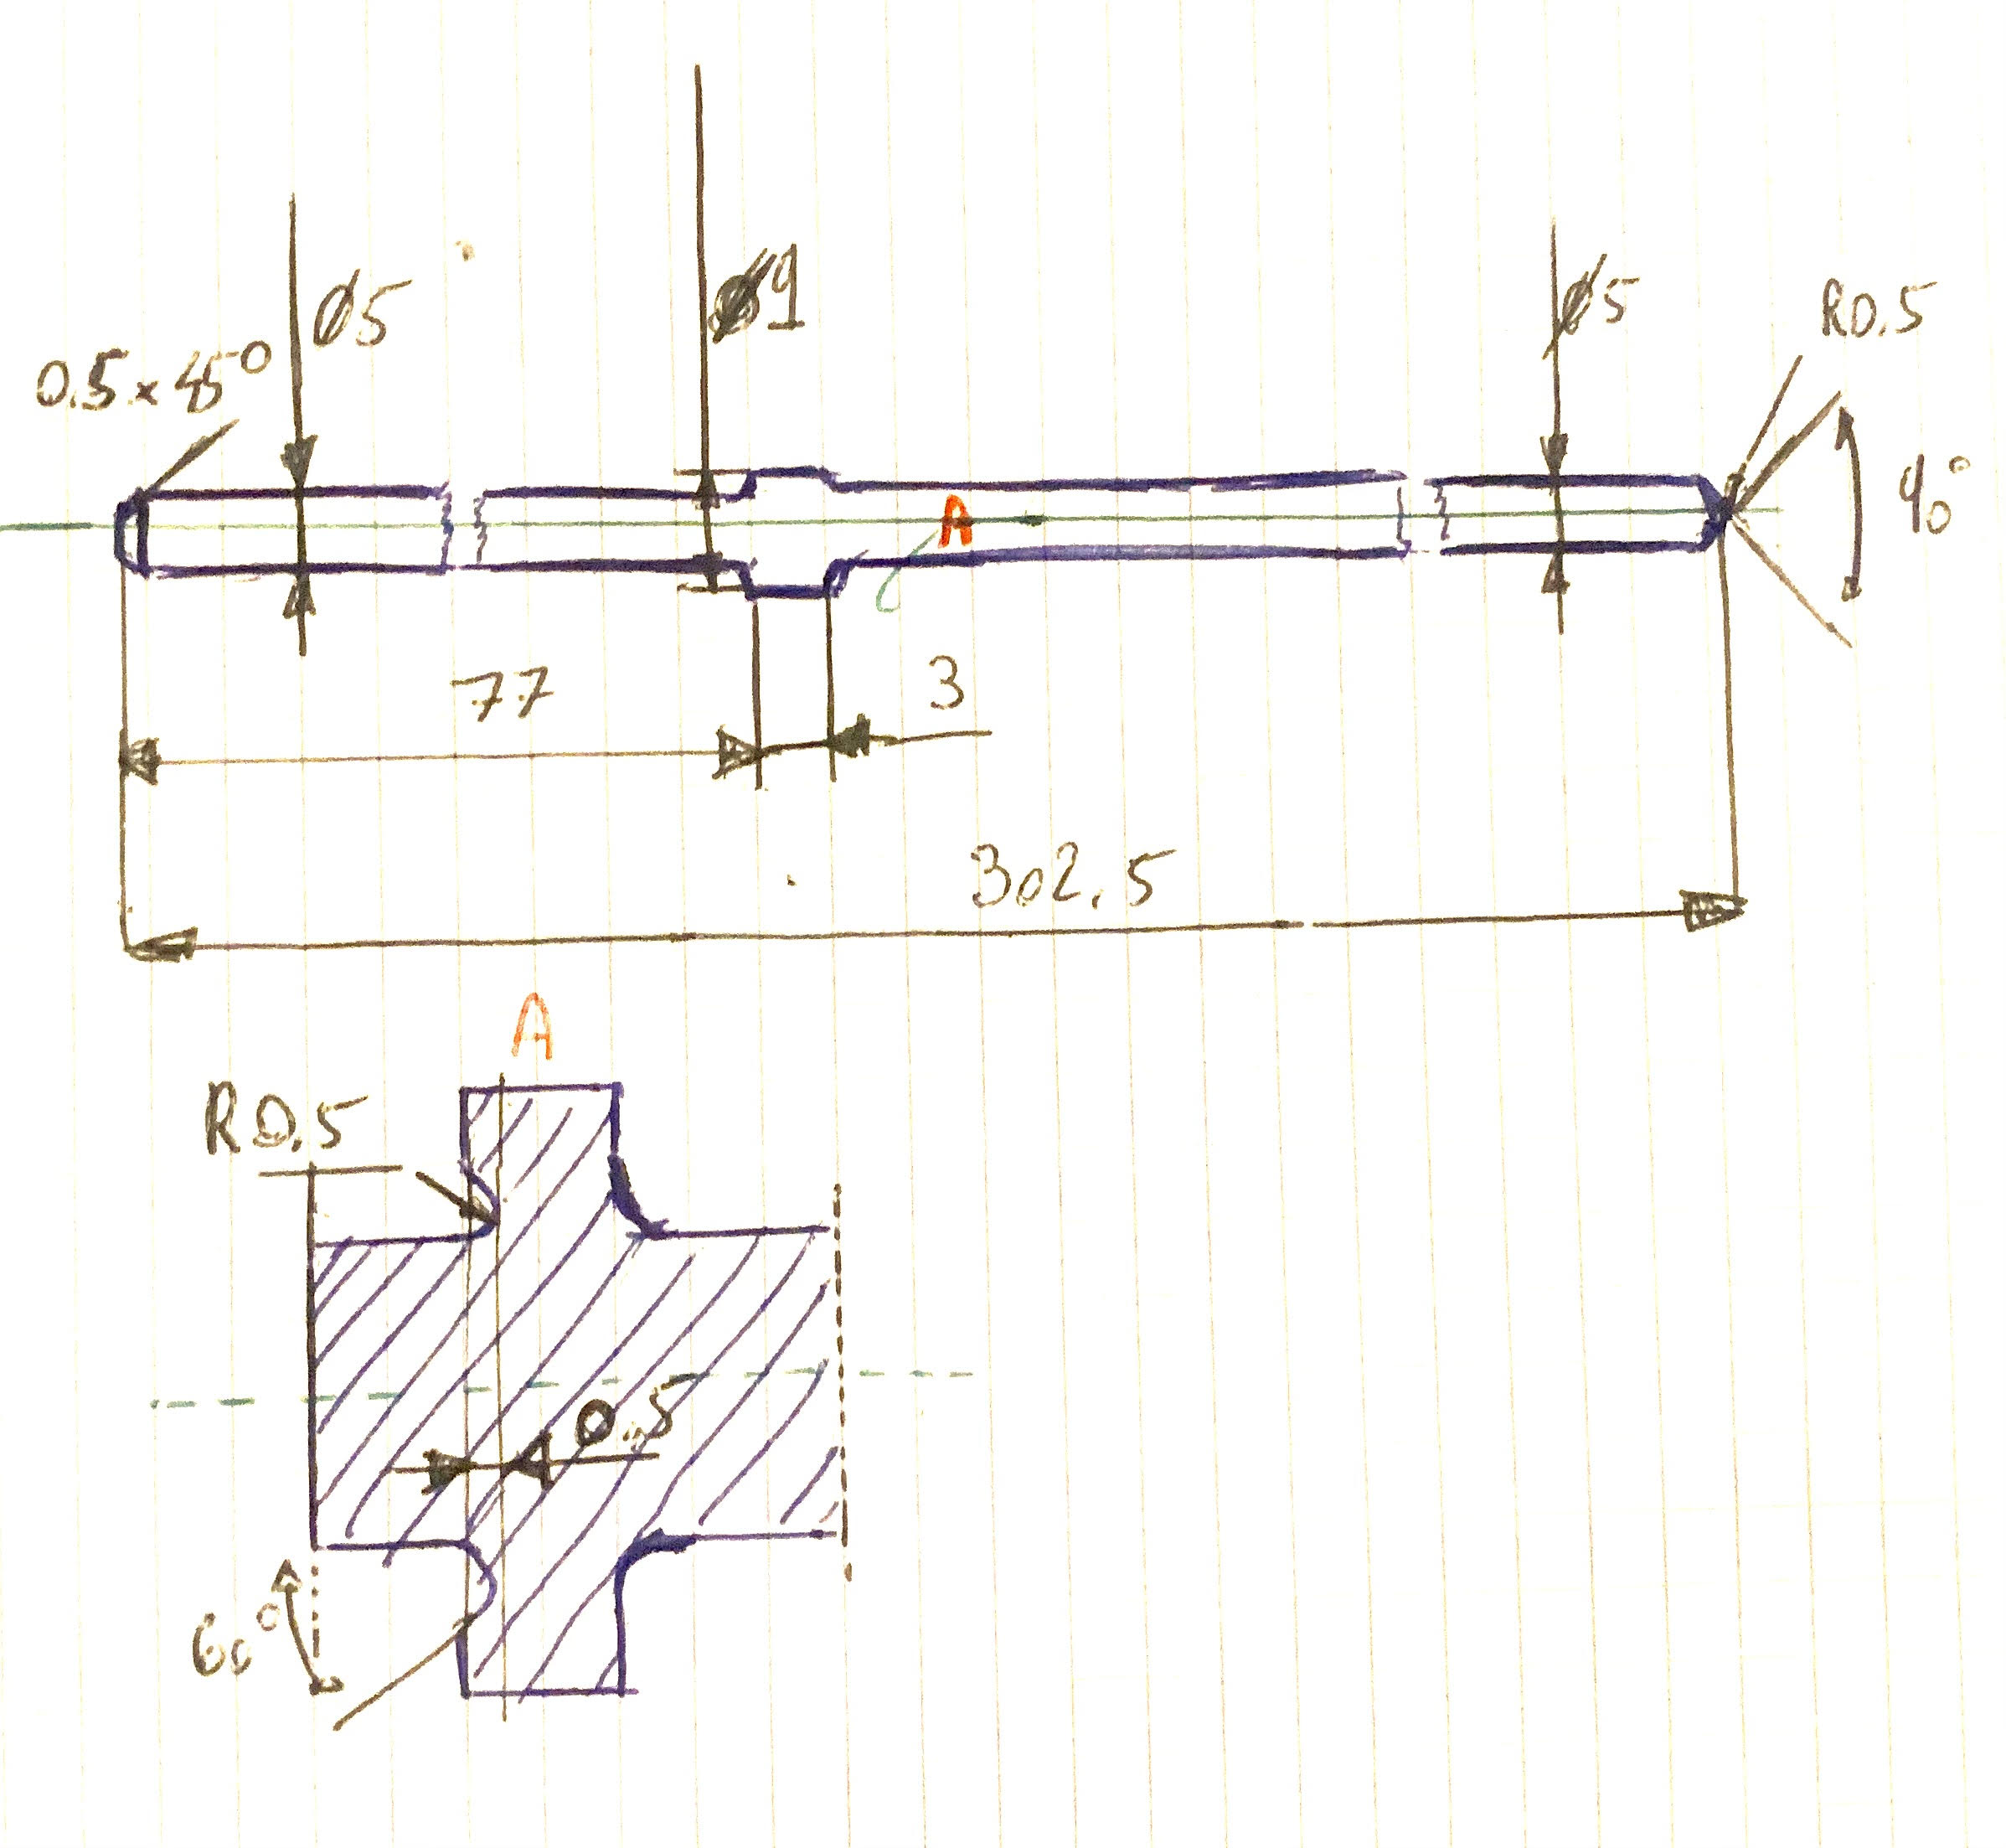 Ø5
Ø9
Ø5
R0.5
0.5 x 45°
90°
A
77
3
302.5
A
R0.5
0.5
60°